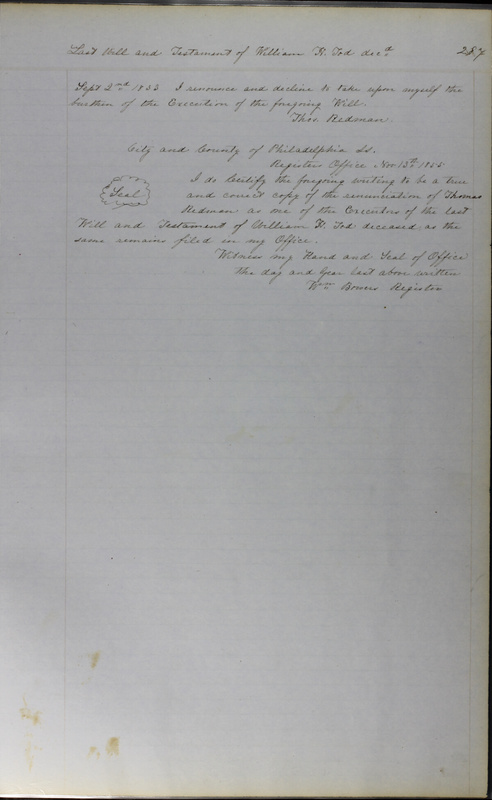 Last Will and Testament of William H. Tod decd 287
Sept 2nd 1833 I renounce and decline to take upon myself the
burthen of the Execution of the foregoing Will.
Thos. Redman.
City and County of Philadelphia Ss.
Registers Office Nov. 13th 1855
I do Certify the foregoing writing to be a true
Seal and correct copy of the renunciation of Thomas
Redman as one of the Executors of the last
Will and Testament of William H. Tod deceased as the
same remains filed in my Office.
Witness my Hand and Seal of Office
the day and Year last above written
Wm Bowers Register